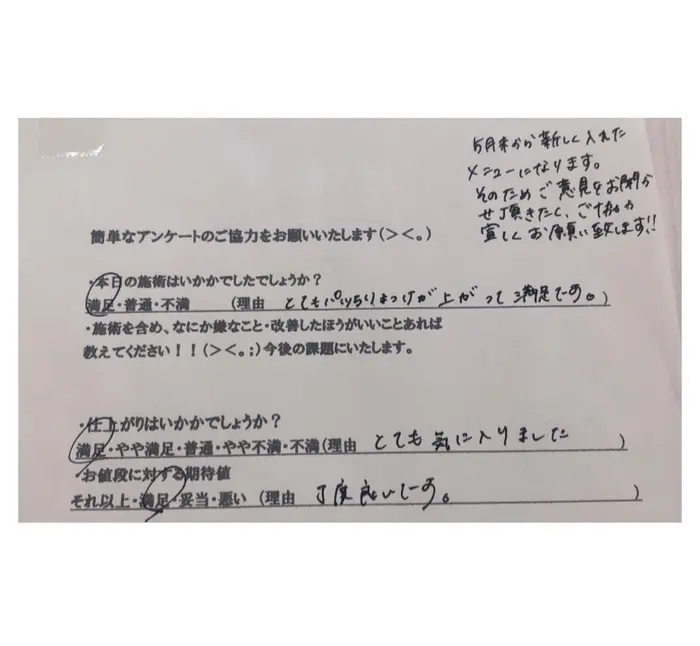 5月末から新しく入れた
メニューになります。
そのためご意見をお聞か
せ頂きたく、ご協力
宜しくお願い致します!!
簡単なアンケートのご協力をお願いいたします(><。)
・本日の施術はいかかでしたでしょうか?
満足・普通・不満 (理由 とてもぱっちりまつげが上がって満足です。)
・施術を含め、なにか嫌なこと・改善したほうがいいことあれば
教えてください!!(><。;)今後の課題にいたします。
・仕上がりはいかかでしょうか?
満足・やや満足・普通・やや不満・不満(理由 とても気に入りました )
・お値段に対する期待値
それ以上・満足・妥当・悪い (理由 丁度良いです。 )